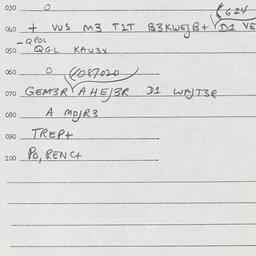 030 0 (624
040 + VUS M3 T1T B3KWEJB+ D1 VE
- QPOL
050 QGL KAU3X
060 0 (4087020
070 GEM3R A HEJ3R D1 WAJT3R
080 A MDJR3
090 TREP+
100 PO, RENC+